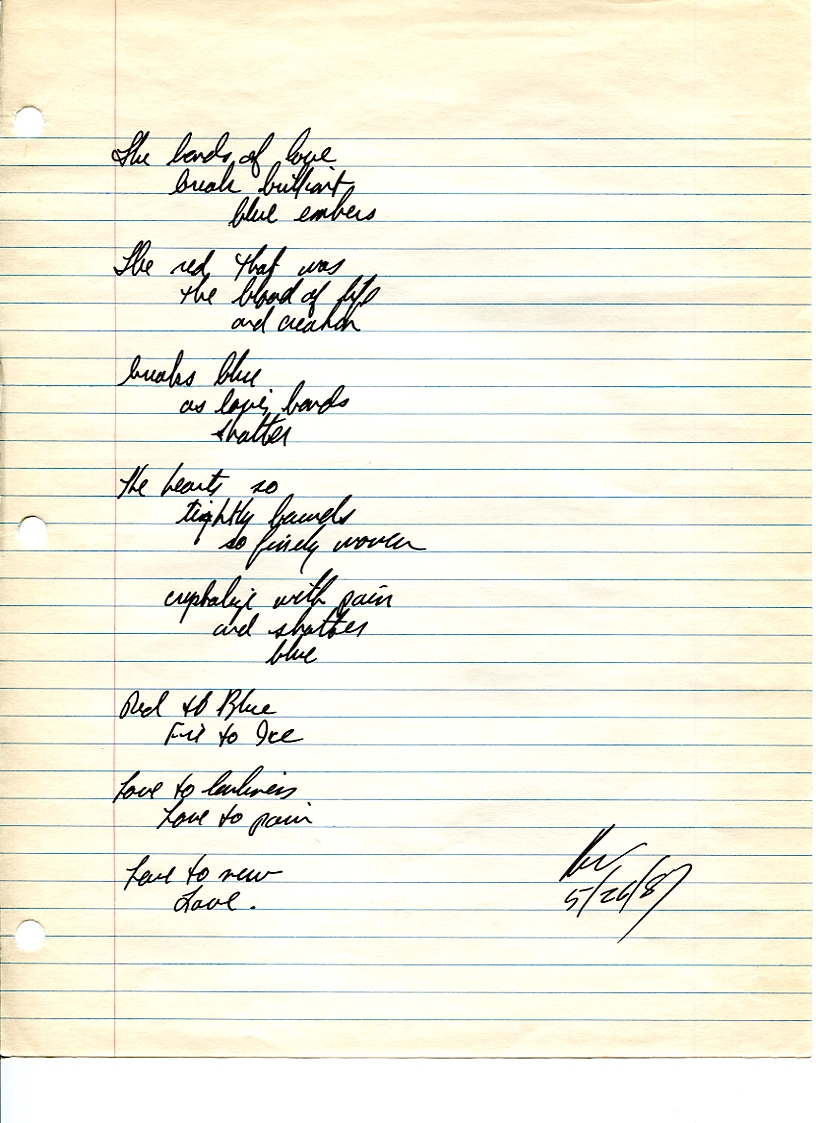 The bonds of love
break brilliant
blue embers
The red that was
the blood of life
and creation
breaks blue
as love's bonds
shatter
The hearts so
tightly bounds
so finely woven
with pain
and shatters
blue
Red to Blue
Fire to Ice
Love to
Love to pain
Love to new
Love.
5/26/87